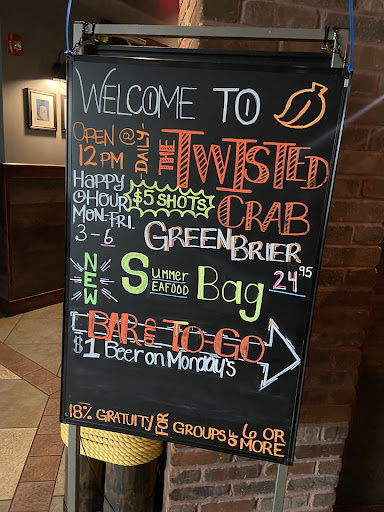 WELCOME TO
OPEN @
12 PM
DAILY!
THE TWISTED
CRAB
HAPPY
HOUR
MON-FRI.
3-6
$5 SHOTS
GREENBRIER
NEW
SUMMER
SEAFOOD Bag 24.95
BAR TO-GO
$1 Beer on Monday's
18% GRATUITY FOR GROUPS OF 6 OR
MORE